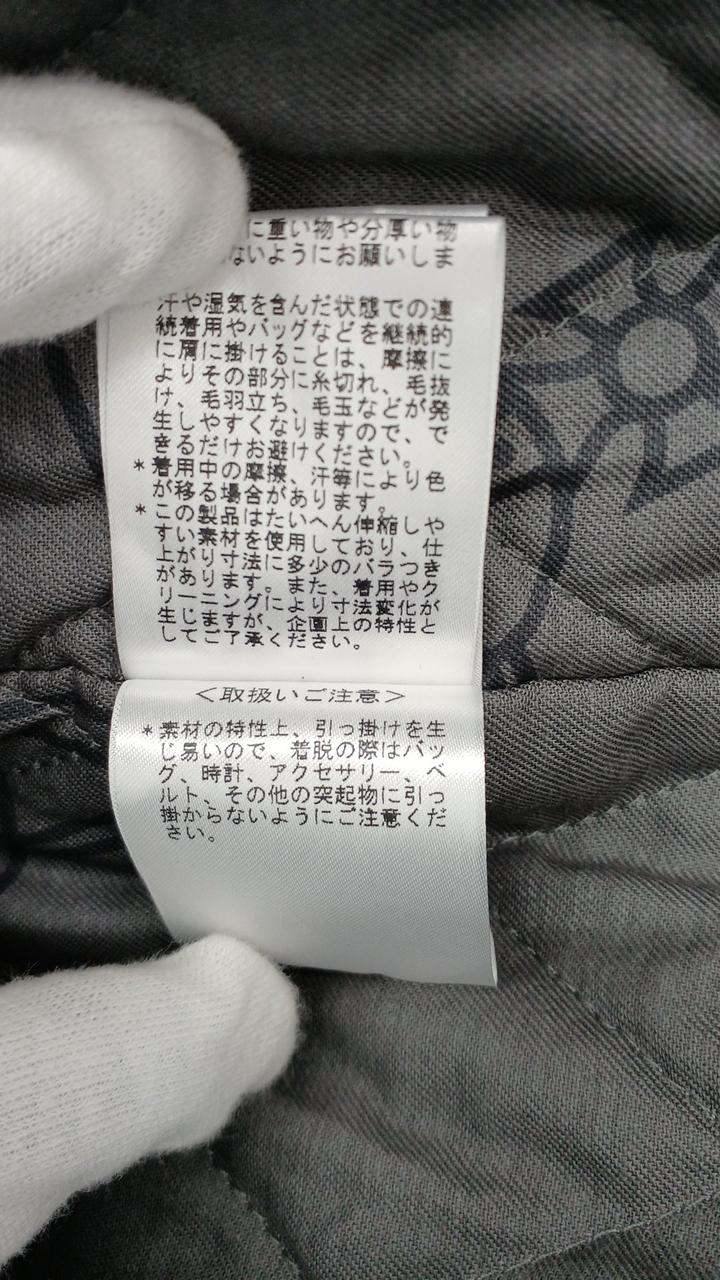 に重い物や分厚い物
ないようにお願いしま
汗や湿気を含んだ状態での連
続着用やバッグなどを継続的
に肩に掛けることは、摩擦に
よりその部分に糸切れ、毛抜
け、毛羽立ち、毛玉などが発
生しやすくなりますので、で
きるだけお避けください。
*着用中の摩擦、汗等により色
が移る場合があります。
*この製品はたいへん伸縮しや
すい素材を使用しており、仕
上がり寸法に多少のバラつき
があります。また、着用やク
リーニングにより寸法変化が
生じますが、企画上の特性と
してご了承ください。
<取扱いご注意>
*素材の特性上、引っ掛けを生
じ易いので、着脱の際はバッ
グ、時計、アクセサリー、ベ
ルト、その他の突起物に引っ
掛からないようにご注意くだ
さい。